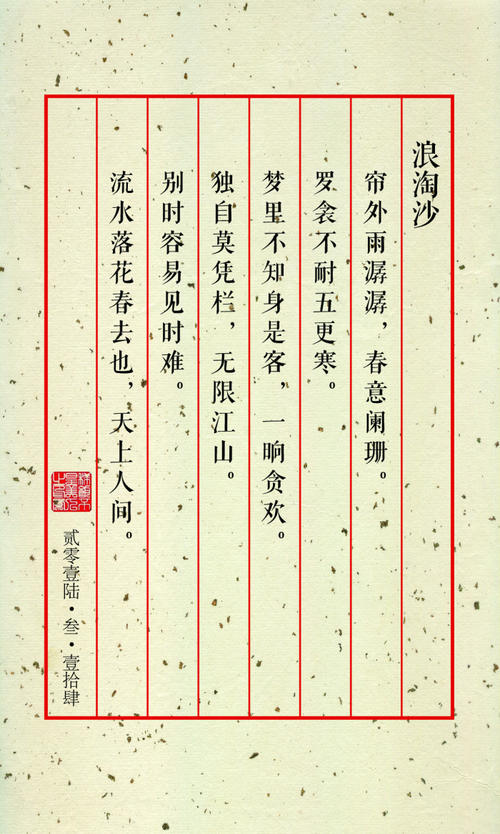 浪淘沙
帘外雨潺潺，春意阑珊。
罗衾不耐五更寒。
梦里不知身是客，一晌贪欢。
独自莫凭栏，无限江山。
别时容易见时难。
流水落花春去也，天上人间。
贰零壹陆·叁·壹拾肆